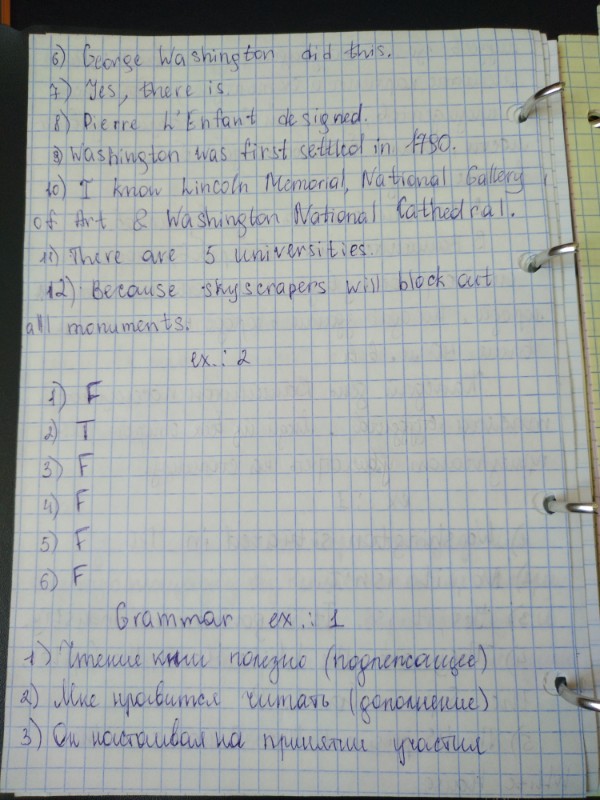 6) George Washington did this.
7) Yes, there is.
8) Pierre L'Enfant designed.
9) Washington was first settled in 1790.
10) I know Lincoln Memorial, National Gallery
of Art & Washington National Cathedral.
11) There are 5 universities.
12) Because skyscrapers will block out
all monuments.
ex.: 2
1) F
2) T
3) F
4) F
5) F
6) F
Grammar ex.: 1
1) Чтение книг полезно (подлежащее)
2) Мне нравится читать (дополнение)
3) Он настаивал на принятии участия